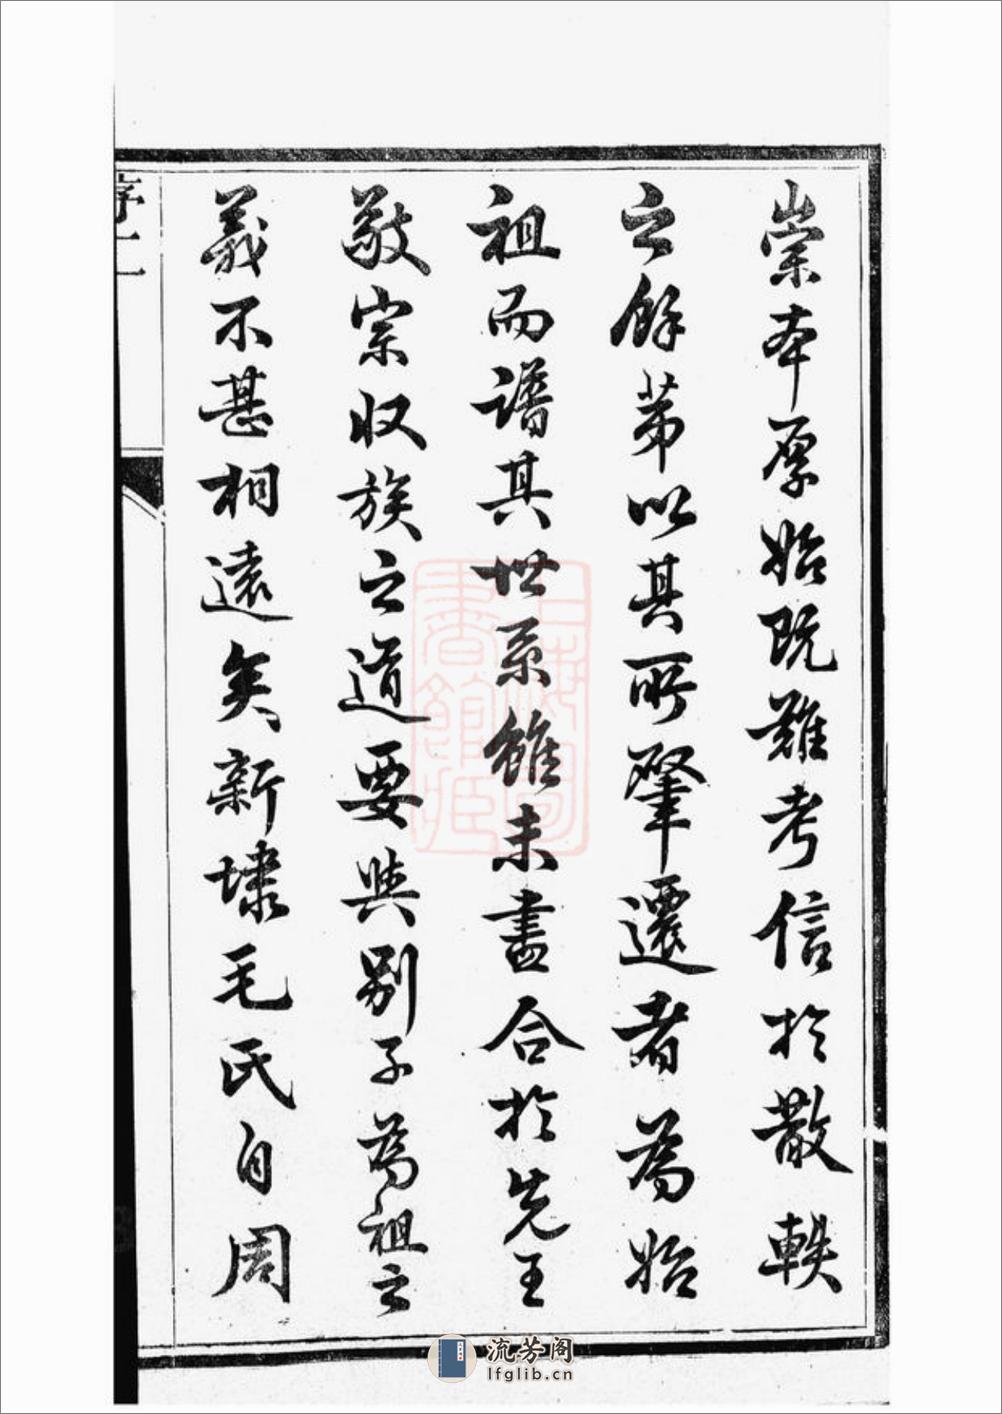 崇本原始既難考信於散軼
之餘苐以其所肇遷者為始
祖而譜其世系雖未盡合於先王
敬宗收族之道要與別子為祖之
義不甚相遠矣新埭毛氏自周
序二
上海圖書館藏
流芳阁
lfglib.cn